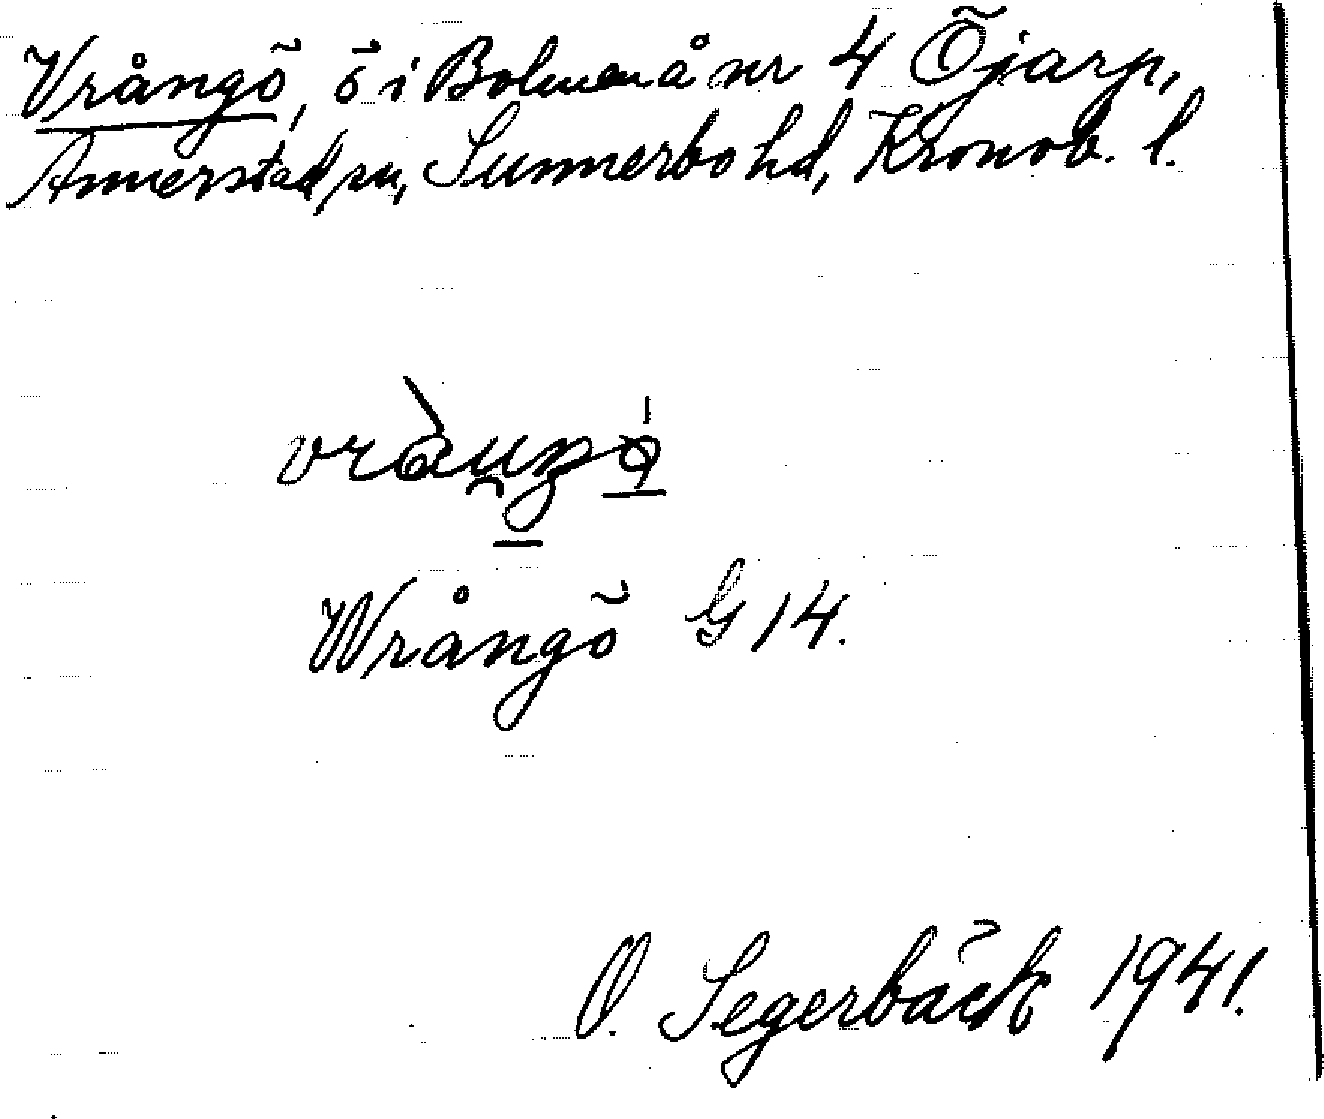 Vrångö, ö i Bolmenå nr 4 Öjarp,
Annerstad sn, Sunnerbo hd, Kronob. l.
Wrångö G 14.
O. Segerbäck 1941.